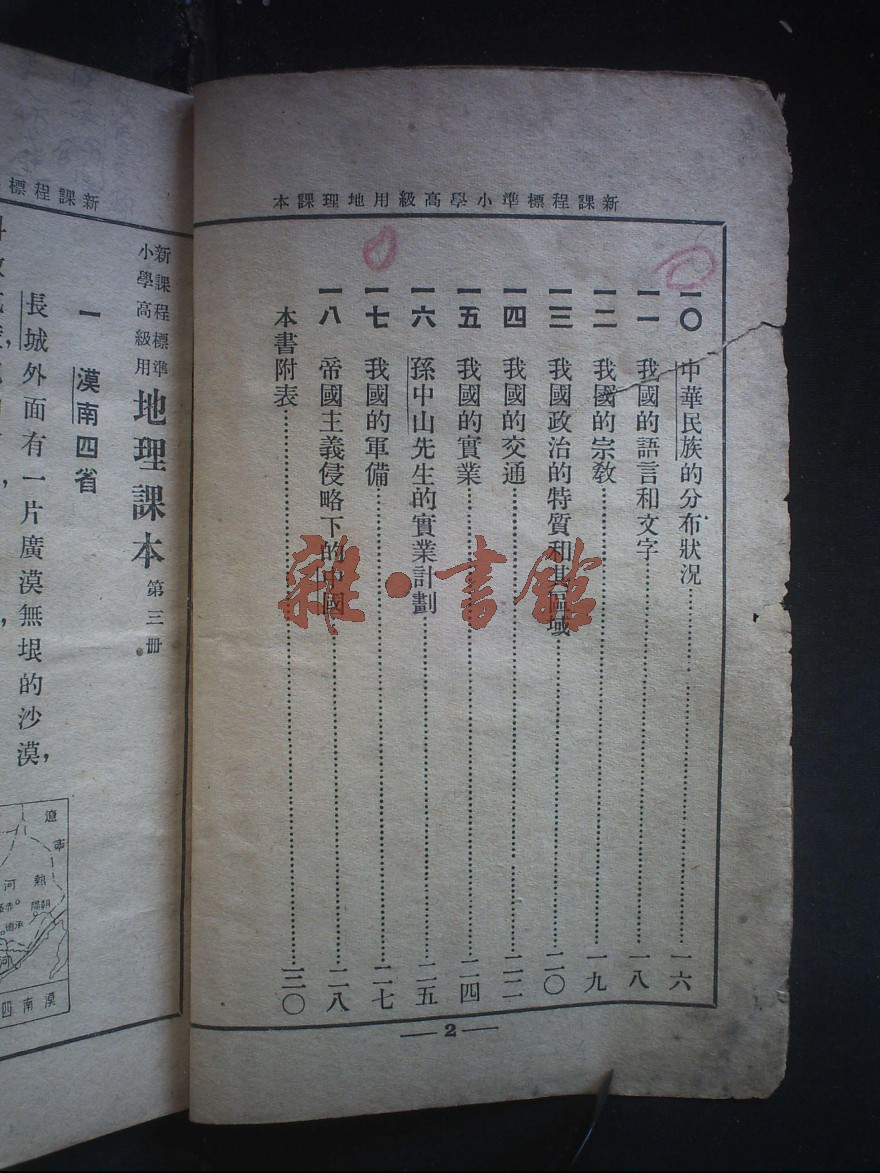 新課程標準小學高級用地理課本
一〇 中華民族的分布狀況 一六
一一 我國的語言和文字 一八
一二 我國的宗教 一九
一三 我國政治的特質和其區域 二〇
一四 我國的交通 二二
一五 我國的實業 二四
一六 孫中山先生的實業計劃 二五
一七 我國的軍備 二七
一八 帝國主義侵略下的中國 二八
本書附表 三〇
2
雜·書館
新課程標
新課程標準
小學高級用
地理課本 第三冊
一 漠南四省
長城外面有一片廣漠無垠的沙漠，
遼
熱河
朝陽
承德
河
漠南四